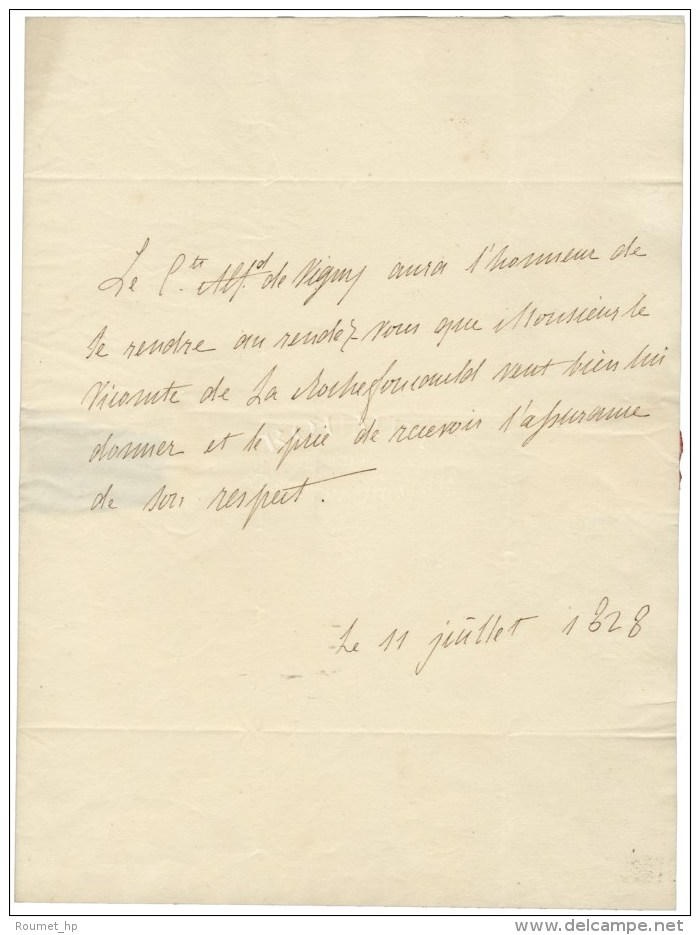 Le C.te Alf.d de Vigny aura l'honneur de
se rendre au rendez vous que Monsieur le
Vicomte de La Rochefoucauld veut bien lui
donner et le prie de recevoir l'assurance
de son respect.
Le 11 juillet 1828
Roumet_hp
delcampe.net